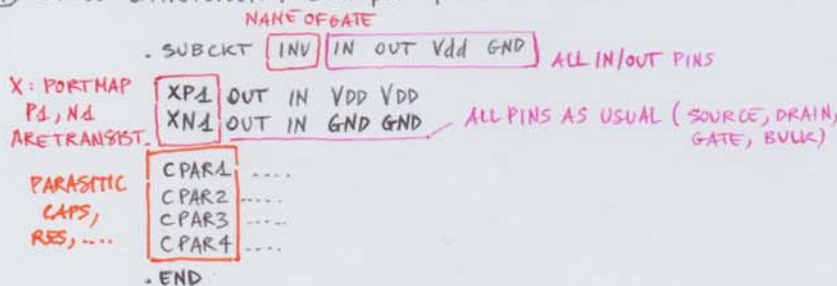 NAME OF GATE
.SUBCKT INV IN OUT Vdd GND
ALL IN/OUT PINS
X: PORTMAP
P1, N1
ARE TRANSIST.
XP1 OUT IN VDD VDD
XN1 OUT IN GND GND
ALL PINS AS USUAL (SOURCE, DRAIN,
GATE, BULK)
PARASITIC
CAPS,
RES, ....
CPAR1 ....
CPAR2 ....
CPAR3 ....
CPAR4 ....
.END